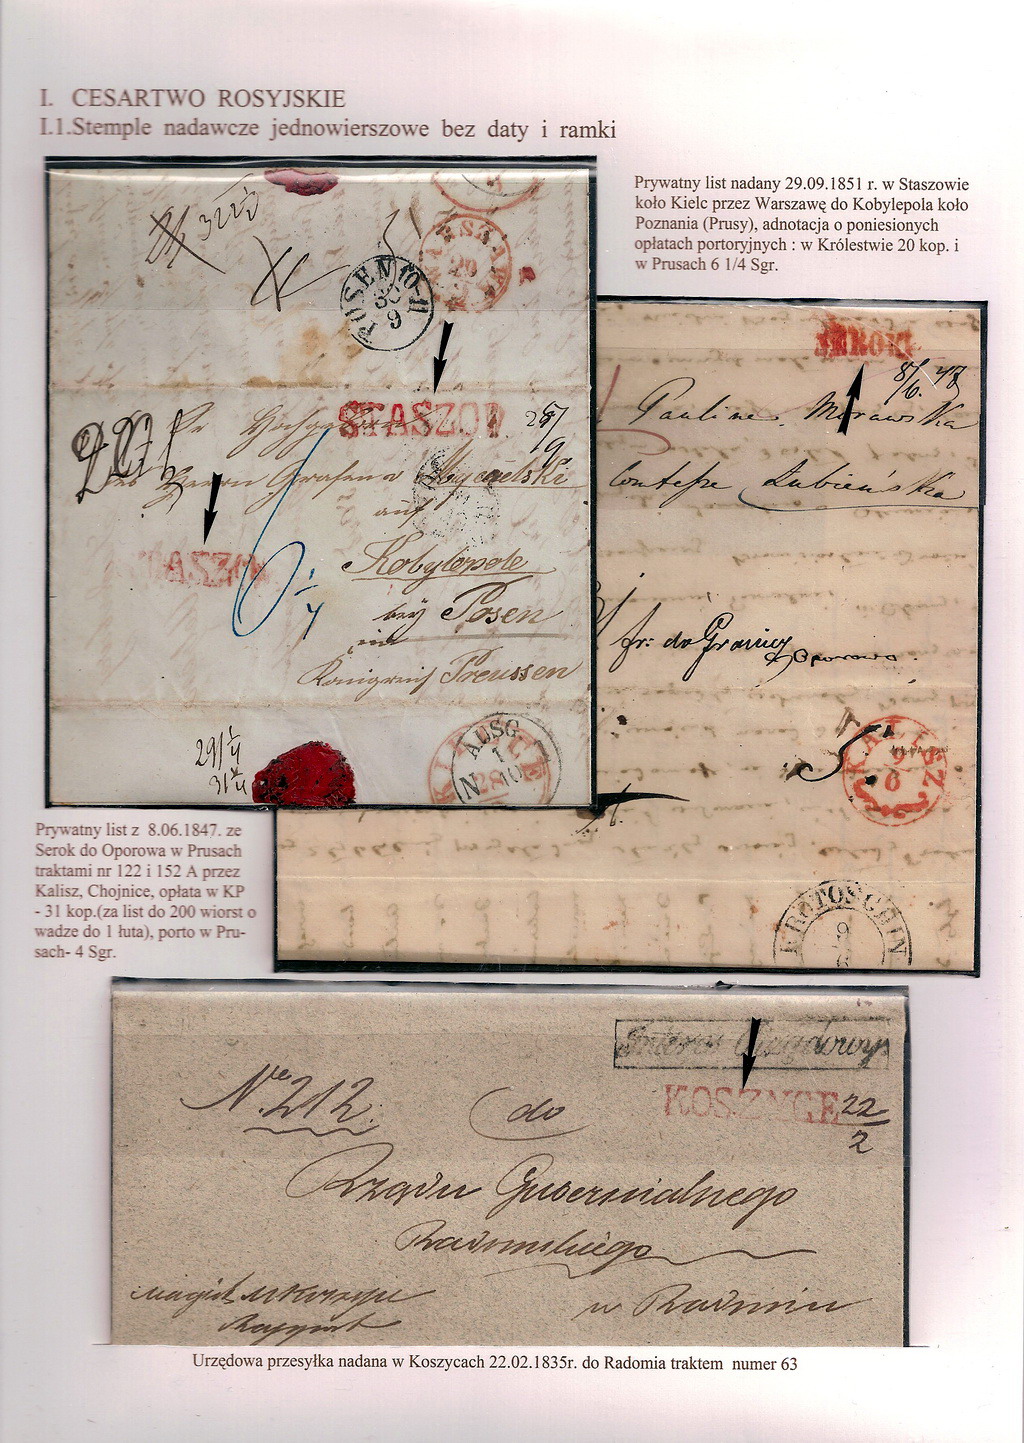 I. CESARTWO ROSYJSKIE
I.1.Stemple nadawcze jednowierszowe bez daty i ramki
Prywatny list nadany 29.09.1851 r. w Staszowie
koło Kielc przez Warszawę do Kobylepola koło
Poznania (Prusy), adnotacja o poniesionych
opłatach portoryjnych : w Królestwie 20 kop. i
w Prusach 6 1/4 Sgr.
WARSZAWA
POSEN 10-11
30
9
STASZOW
29/9
Herrn Grafen v Mycielski
auf
Kobylepole
bey Posen
im
Königreich Preussen
6 1/4
ASZO
AUSG
1
N 10
SEROK
8/6 47
Pauline Morawska
Contesse Łubieńska
fr: do Granicy
Oporowo.
KALISZ
9
6
KROTOSCHIN
9
6
Prywatny list z 8.06.1847. ze
Serok do Oporowa w Prusach
traktami nr 122 i 152 A przez
Kalisz, Chojnice, opłata w KP
- 31 kop.(za list do 200 wiorst o
wadze do 1 łuta), porto w Pru-
sach- 4 Sgr.
Interes Urzędowy
KOSZYCE 22
2
No 212. do
Rządu Gubernialnego
Radomskiego
w Radomiu
Rapport
Urzędowa przesyłka nadana w Koszycach 22.02.1835r. do Radomia traktem numer 63